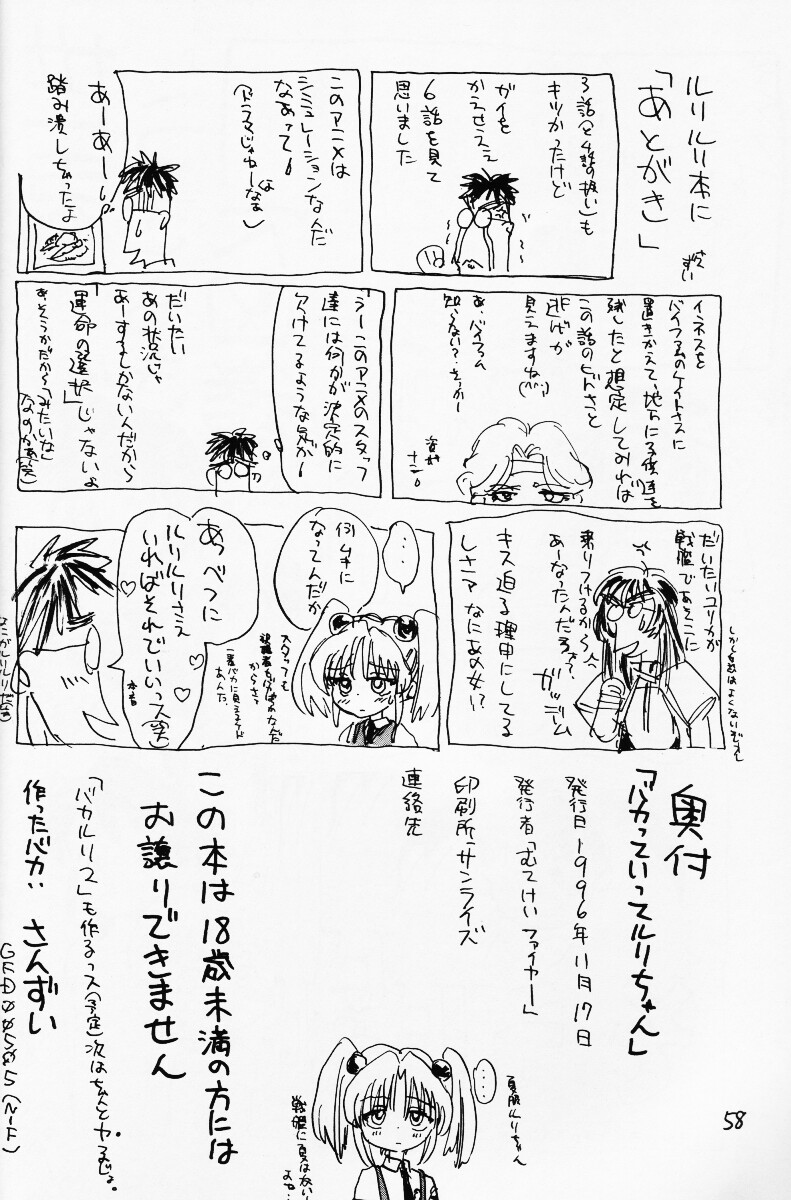 ルリルリ本に
「あとがき」
さんずい
3話や4話の扱いも
キツかったけど
ガイを
かえせええ
6話を見て
思いました
このアニメは
シミュレーションなんだ
なあって
(ドラマじゃねーなよ)
あーあー
踏み潰しちゃったよ
イネスを
バイファムのケイトさんに
置きかえて、地下に子供達を
残したと想定してみれば
この話のヒドさと
逃げが
見えますね
あ、バイファム
知らない?そっかー
うーこのアニメのスタッフ
達には何かが決定的に
欠けてるような気が
だいたい
あの状況じゃ
あーするしかないんだから
「運命の選択」じゃないよ
あ、そうかだから「みたいな」
なのかあ(笑)
だいたいユリカが
戦艦であそこに
乗りつけるから
あーなったんだろ??
ガッデーム
キス迫る理由にしてる
しさーァ なにあの女!?
しかし名はよくない
・・・
何ムキに
なってんだか
スタッフも
からさっ
一番バカに見えますけど
あんた
あっべつに
ルリルリさえ
いればそれでいいっス(笑)
本音
なにがルリルリだ
奥付
「バカっていってルリちゃん」
発行日 1996年11月17日
発行者「むてけいファイヤー」
印刷所「サンライズ
連絡先
この本は18歳未満の方には
お譲りできません
「バカルリス」も作るっス(予定)次はちゃんとヤるじょ。
作ったバカ:さんずい
夏服ルリちゃん
・・・
戦艦に夏はない
58